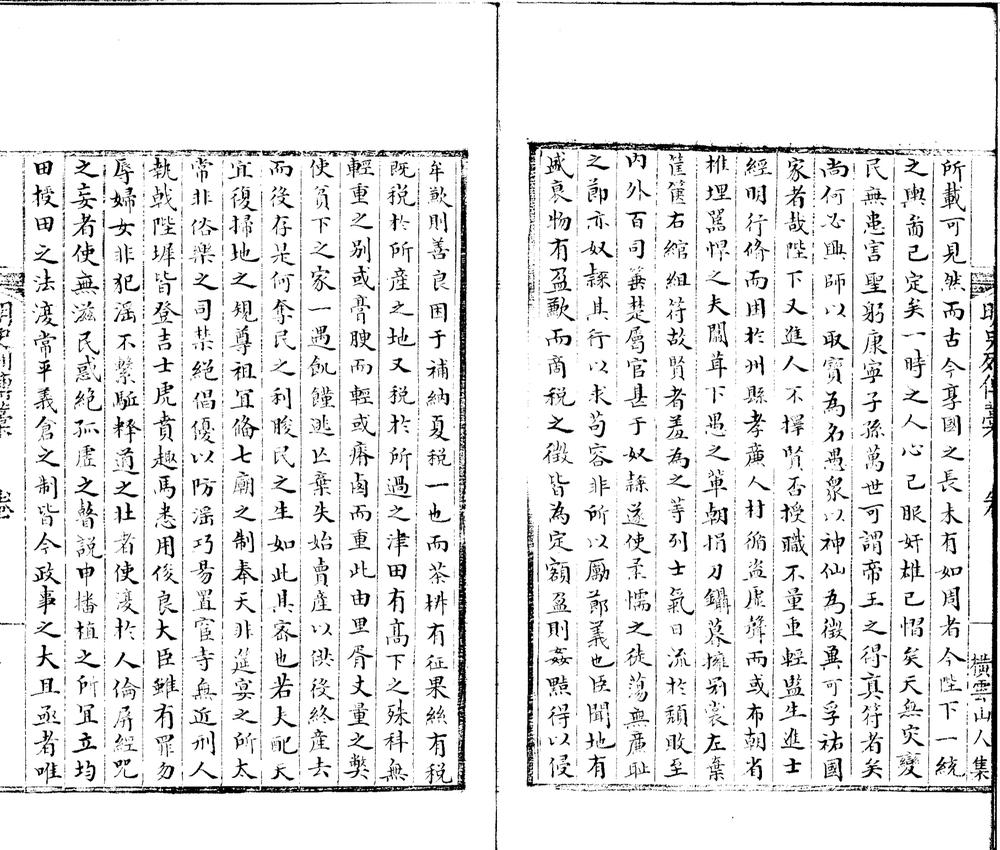 所載可見然而古今享國之長未有如周者今陛下一統
之輿畣已定矣一時之人心已服奸雄已慴矣天無灾變
民無患害聖躬康寧子孫萬世可謂帝王之得真符者矣
尚何必興師以取寶為名愚衆以神仙為徴冀可孚祐國
家者哉陛下又進人不擇賢否授職不量重輕監生進士
經明行脩而困於州縣孝廉人材循盜虚聲而或布朝省
椎埋嚚悍之夫闒茸下愚之軰朝捐刀鑷暮擁冠裳左棄
筐篋右綰組符故賢者羞為之等列士氣日流於頽敗至
内外百司箠楚屬官甚于奴隷遂使柔懦之徒蕩無㢘耻
之節亦奴隷其行以求苟容非所以勵節義也臣聞地有
盛衰物有盈歉而商税之徴皆為定額盈則姦黠得以侵
牟歉則善良困于補納夏税一也而茶椕有征果絲有税
既税於所產之地又税於所過之津田有髙下之殊科無
輕重之别或膏腴而輕或瘠鹵而重此由里胥丈量之獘
使貧下之家一遇飢饉逃亡棄失始賣産以供後終産去
而後存是何奪民之利朘民之生如此其宻也若夫配天
宜復掃地之規尊祖宜脩七廟之制奉天非筵宴之所太
常非俗樂之司禁絕倡優以防滛巧昜置宦寺無近刑人
執戟陛墀皆登吉士虎賁趣馬悉用俊良大臣雖有罪勿
辱婦女非犯滛不繫駈释道之壮者使濅於人倫屏經咒
之妄者使無滋民惑絕孤虚之瞽説申播植之所宜立均
田授田之法濅常平義倉之制皆今政事之大且亟者唯
明史列傳藁
橫雲山人集